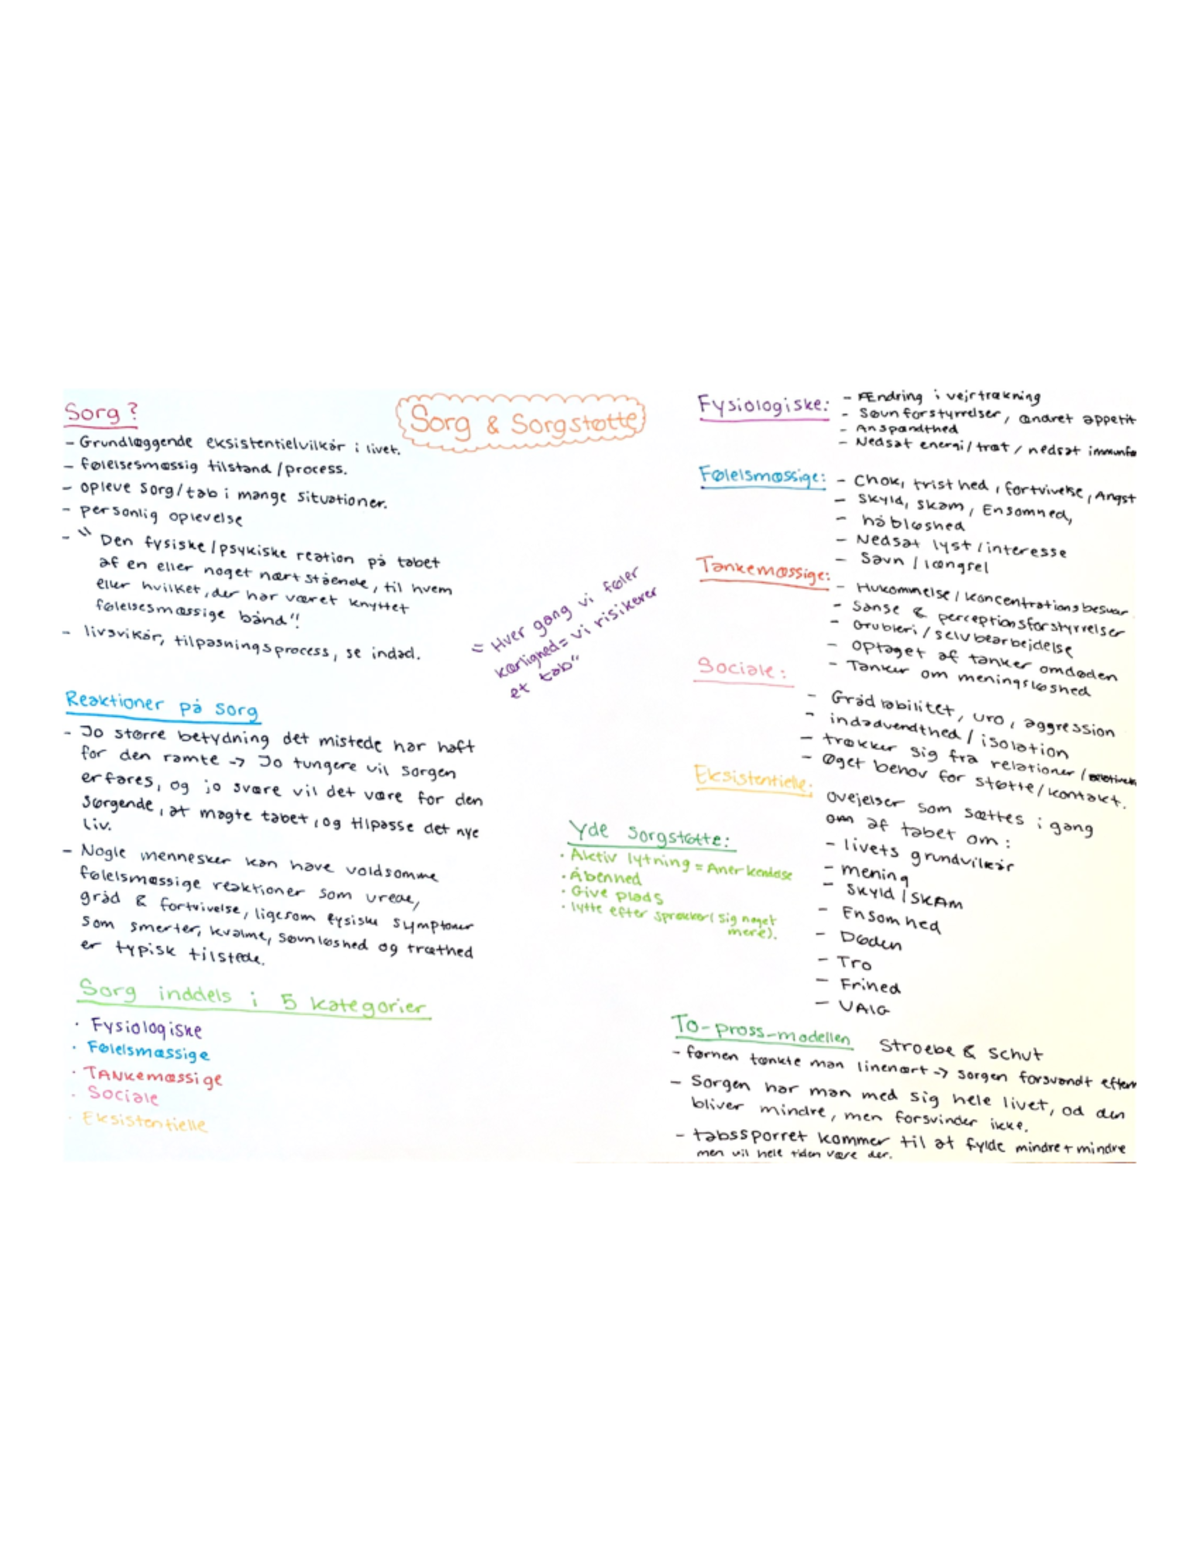 Sorg & Sorgstøtte
Sorg?
- Grundlæggende eksistentielvilkår i livet.
- følelsesmæssig tilstand / process.
- opleve sorg/tab i mange situationer.
- personlig oplevelse
- " Den fysiske / psykiske reation på tabet
af en eller noget nært stående, til hvem
eller hvilket, der har været knyttet
følelsesmæssige bånd"!
- livsvikår, tilpasningsprocess, se indad.
= Hver gang vi føler
kærlighed = vi risikerer
et tab"
Reaktioner på sorg
- Jo større betydning det mistede har haft
for den ramte -> Jo tungere vil sorgen
erfares, og jo svære vil det være for den
sørgende, at magte tabet, og tilpasse det nye
Liv.
- Nogle mennesker kan have voldsomme
følelsmæssige reaktioner som vrede,
gråd & fortvivelse, ligesom fysiske symptomer
som smerter, kvalme, søvnløshed og træthed
er typisk tilstede.
Sorg inddels i 5 kategorier
· Fysiologiske
· Følelsmæssige
· TANkemæssige
· Sociale
· Eksistentielle
Yde Sorgstøtte:
· Aktiv lytning = Anerkendelse
· Åbenhed
· Give plads
· lytte efter sprækker ( sig noget
mere).
Fysiologiske:
- Ændring i vejrtrækning
- Søvnforstyrrelser, ændret appetit
- Anspændthed
- Nedsat energi / træt / nedsat
Følelsmæssige:
- Chok, tristhed, fortvivelse, Angst
- Skyld, skam, Ensomhed,
- håbløshed
- Nedsat lyst / interesse
- Savn / længsel
Tankemæssige:
- Hukommelse / koncentrationsbesvær
- Sanse & perceptionsforstyrrelser
- Grubleri / selvbearbejdelse
- Optaget af tanker omdøden
- Tanker om meningsløshed
Sociale:
- Grådlabilitet, uro, aggression
- indadvendthed / isolation
- trækker sig fra relationer /
- Øget behov for støtte / kontakt.
Eksistentielle:
Ovejelser som sættes i gang
om af tabet om:
- livets grundvilkår
- mening
- Skyld / SKAM
- Ensomhed
- Døden
- Tro
- Frihed
- VALG
To-pross-modellen Stroebe & Schut
- førhen tænkte man linenært -> sorgen forsvandt
- Sorgen har man med sig hele livet, od den
bliver mindre, men forsvinder ikke.
- tabssporret kommer til at fylde mindre + mindre
men vil hele tiden være der.